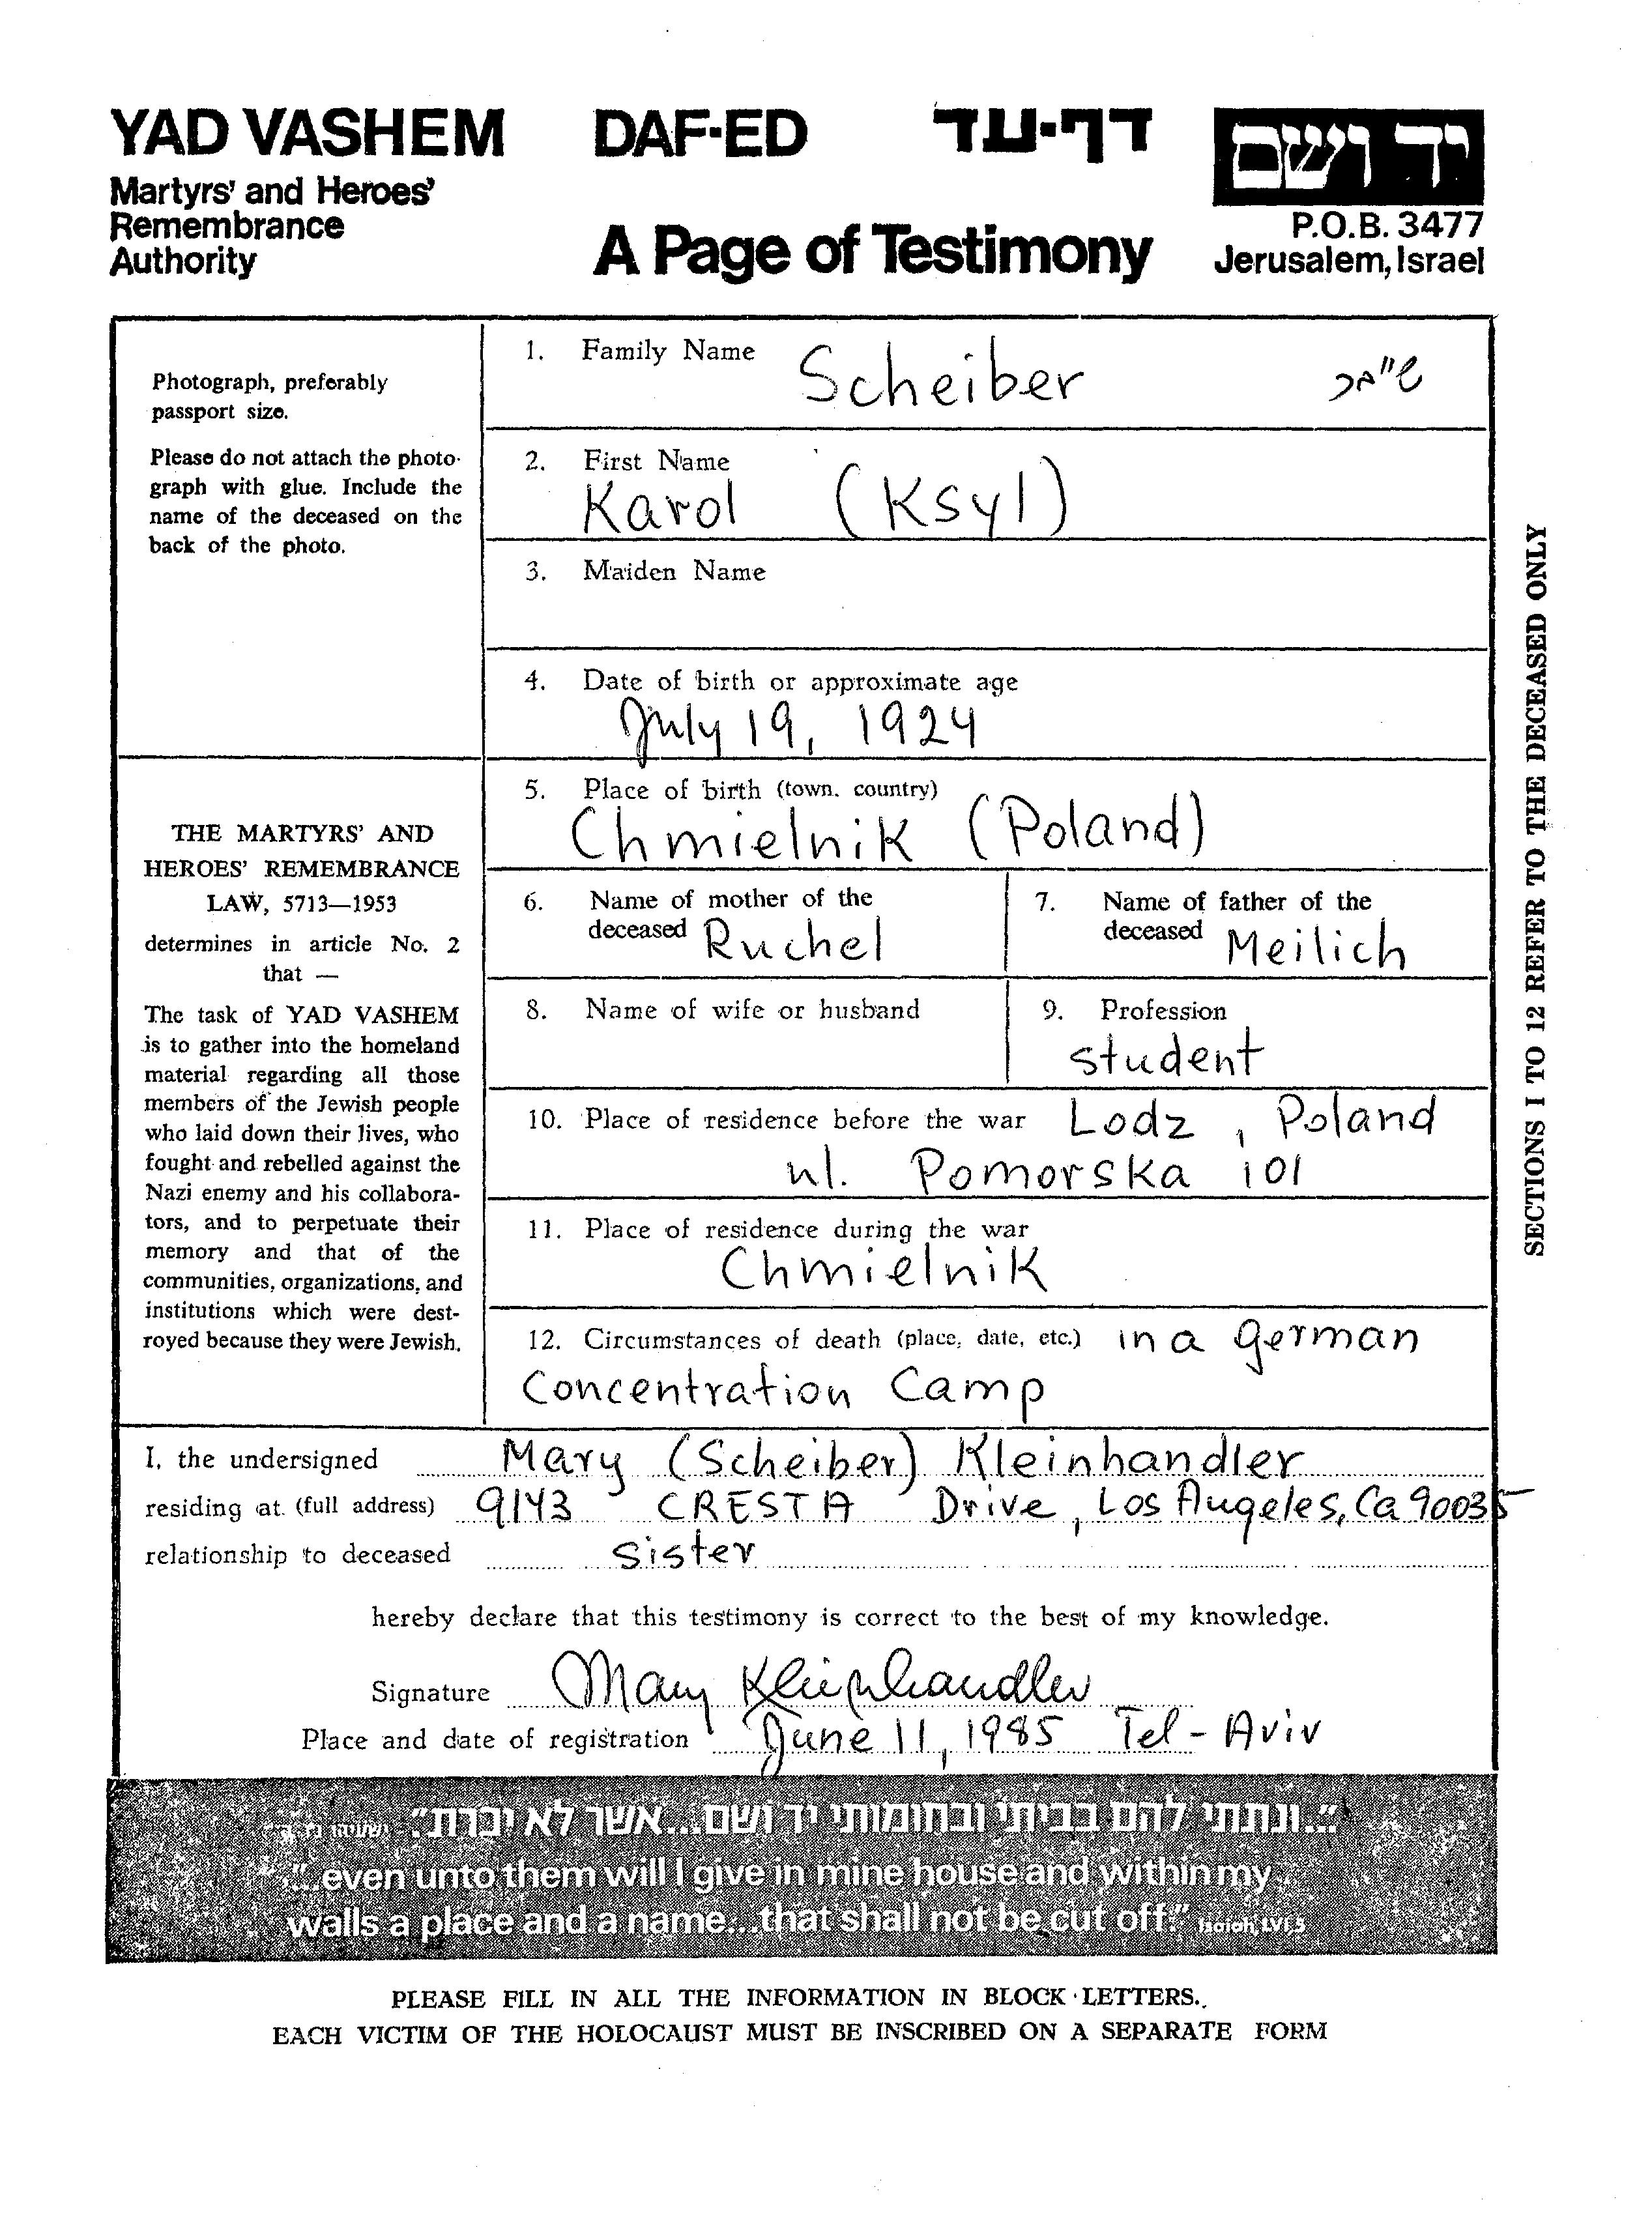 YAD VASHEM DAF-ED דף-עד יד ושם
Martyrs' and Heroes'
Remembrance
Authority
A Page of Testimony
P.O.B. 3477
Jerusalem, Israel
Photograph, preferably
passport size.
Please do not attach the photo-
graph with glue. Include the
name of the deceased on the
back of the photo.
THE MARTYRS' AND
HEROES' REMEMBRANCE
LAW, 5713—1953
determines in article No. 2
that —
The task of YAD VASHEM
is to gather into the homeland
material regarding all those
members of the Jewish people
who laid down their lives, who
fought and rebelled against the
Nazi enemy and his collabora-
tors, and to perpetuate their
memory and that of the
communities, organizations, and
institutions which were dest-
royed because they were Jewish.
1. Family Name Scheiber
2. First Name
Karol (Ksyl)
3. Maiden Name
4. Date of birth or approximate age
July 19, 1924
5. Place of birth (town, country)
Chmielnik (Poland)
6. Name of mother of the
deceased Ruchel
7. Name of father of the
deceased Meilich
8. Name of wife or husband
9. Profession
student
10. Place of residence before the war Lodz, Poland
ul. Pomorska 101
11. Place of residence during the war
Chmielnik
12. Circumstances of death (place, date, etc.) in a german
Concentration Camp
SECTIONS 1 TO 12 REFER TO THE DECEASED ONLY
I, the undersigned Mary (Scheiber) Kleinhandler
residing at (full address) 9143 CRESTA Drive, Los Angeles, Ca 90035
relationship to deceased sister
hereby declare that this testimony is correct to the best of my knowledge.
Signature Mary Kleinhandler
Place and date of registration June 11, 1985 Tel-Aviv
"...ונתתי להם בביתי ובחומותי יד ושם...אשר לא יכרת"
"...even unto them will I give in mine house and within my
walls a place and a name...that shall not be cut off." Isaiah, LVI.5
PLEASE FILL IN ALL THE INFORMATION IN BLOCK LETTERS.
EACH VICTIM OF THE HOLOCAUST MUST BE INSCRIBED ON A SEPARATE FORM